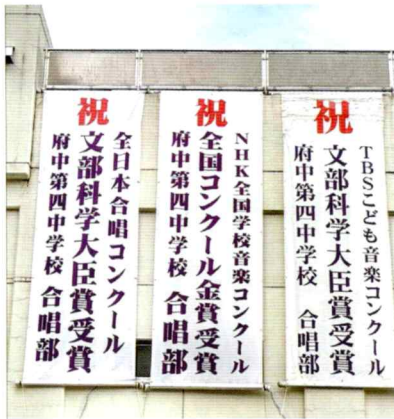 祝
TBSこども音楽コンクール
文部科学大臣賞受賞
府中第四中学校 合唱部
祝
NHK全国学校音楽コンクール
全国コンクール金賞受賞
府中第四中学校 合唱部
祝
全日本合唱コンクール
文部科学大臣賞受賞
府中第四中学校 合唱部